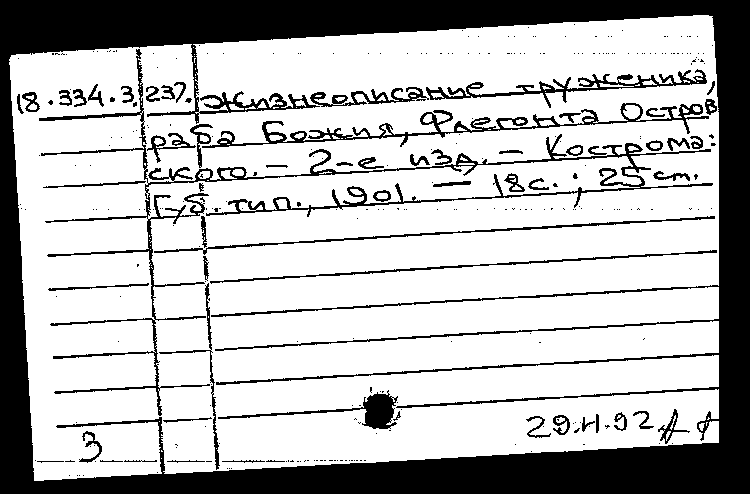 18.334.3.237. Жизнеописание труженика,
раба Божия, Флегонта Остров
ского. - 2-е изд. - Кострома:
Губ. тип., 1901. - 18с.; 25 см.
3